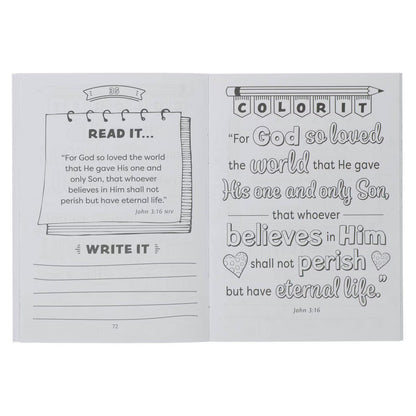 35
READ IT...
“For God so loved the world
that He gave His one and
only Son, that whoever
believes in Him shall not
perish but have eternal life.”
John 3:16 NIV
WRITE IT
72
COLOR IT
“For God so loved
the world that He gave
His one and only Son,
that whoever
believes in Him
shall not perish
but have eternal life.”
John 3:16